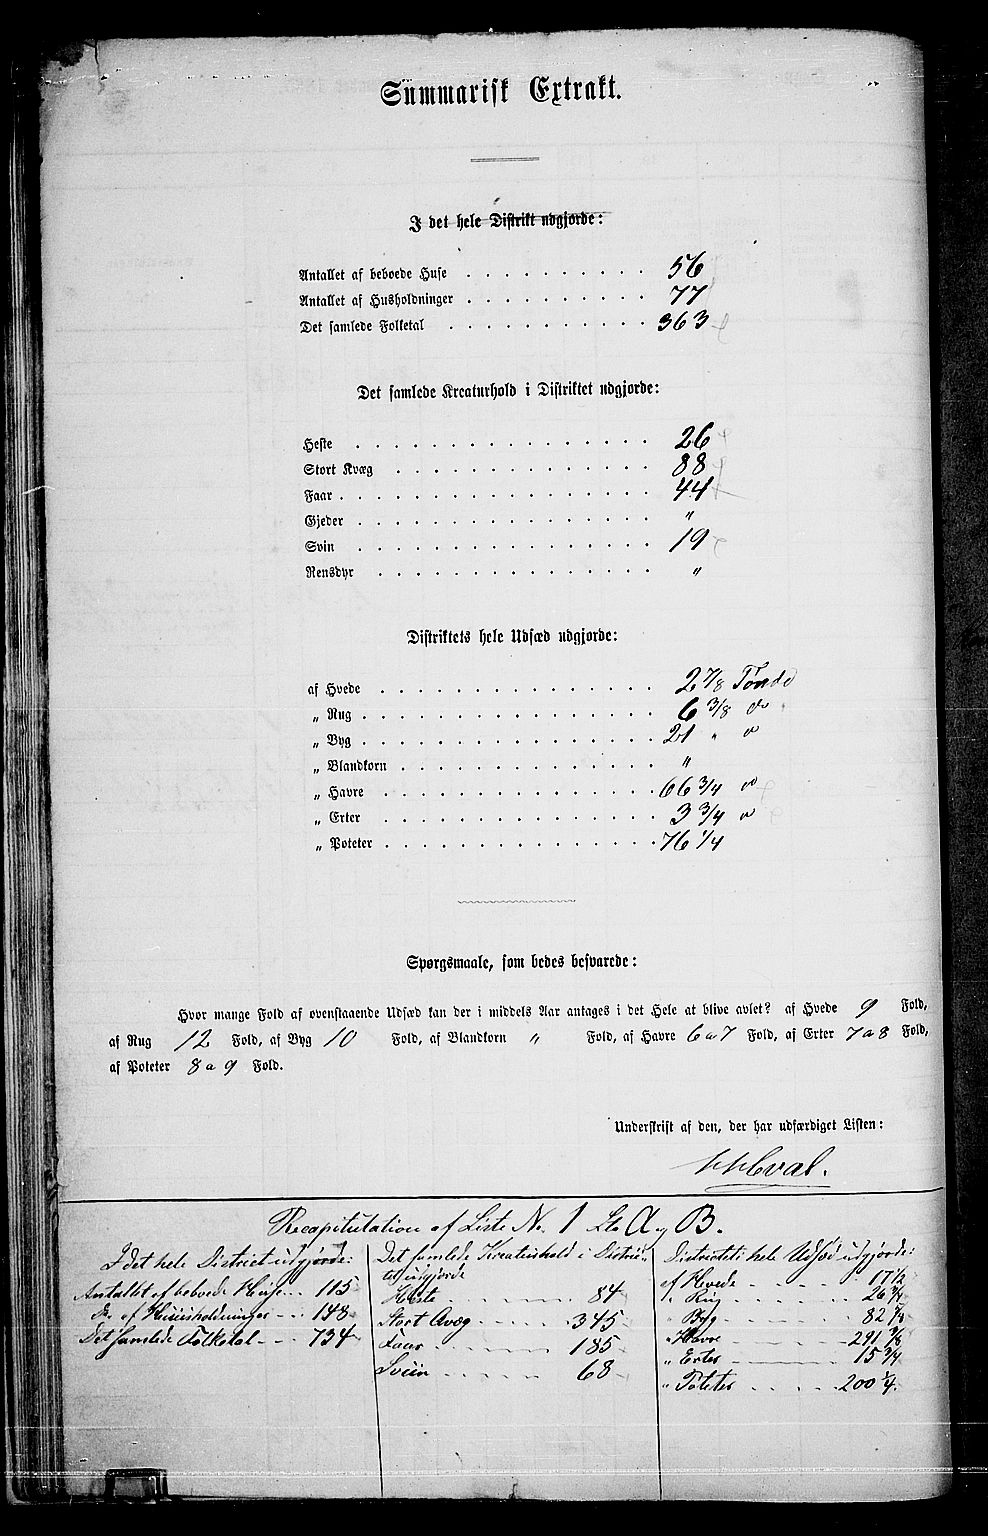 Summarisk Extrakt.
I det hele Distrikt udgjorde:
Antallet af beboede Huse 56
Antallet af Husholdninger 77
Det samlede Folketal 363
Det samlede Kreaturhold i Distriktet udgjorde:
Heste 26
Stort Kvæg 88
Faar 44
Gjeder "
Svin 19
Rensdyr "
Distriktets hele Udsæd udgjorde:
af Hvede 2 7/8 Tønde
" Rug 6 3/8 do
" Byg 21 " do
" Blandkorn "
" Havre 66 3/4 do
" Erter 3 3/4 do
" Poteter 76 1/4
Spørgsmaale, som bedes besvarede:
Hvor mange Fold af ovenstaaende Udsæd kan der i middels Aar antages i det Hele at blive avlet? af Hvede 9 Fold,
af Rug 12 Fold, af Byg 10 Fold, af Blandkorn " Fold, af Havre 6 a 7 Fold, af Erter 7 a 8 Fold,
af Poteter 8 a 9 Fold.
Underskrift af den, der har udfærdiget Listen:
Recapitulation af Liste No. 1 Lt. A og B.
I det hele District udgjorde:
Antallet af beboede Huse 115
do. af Huusholdninger 148
Det samlede Folketal 734
Det samlede Kreaturhold i Distric-
tet udgjorde
Heste 84
Stort Qvæg 345
Faar 185
Sviin 68
Districtets hele Udsæd udgjorde:
af Hvede 17 1/2
" Rug 26 3/4
" Byg 82
" Havre 291
" Erter 15 3/4
" Poteter 200 1/4.